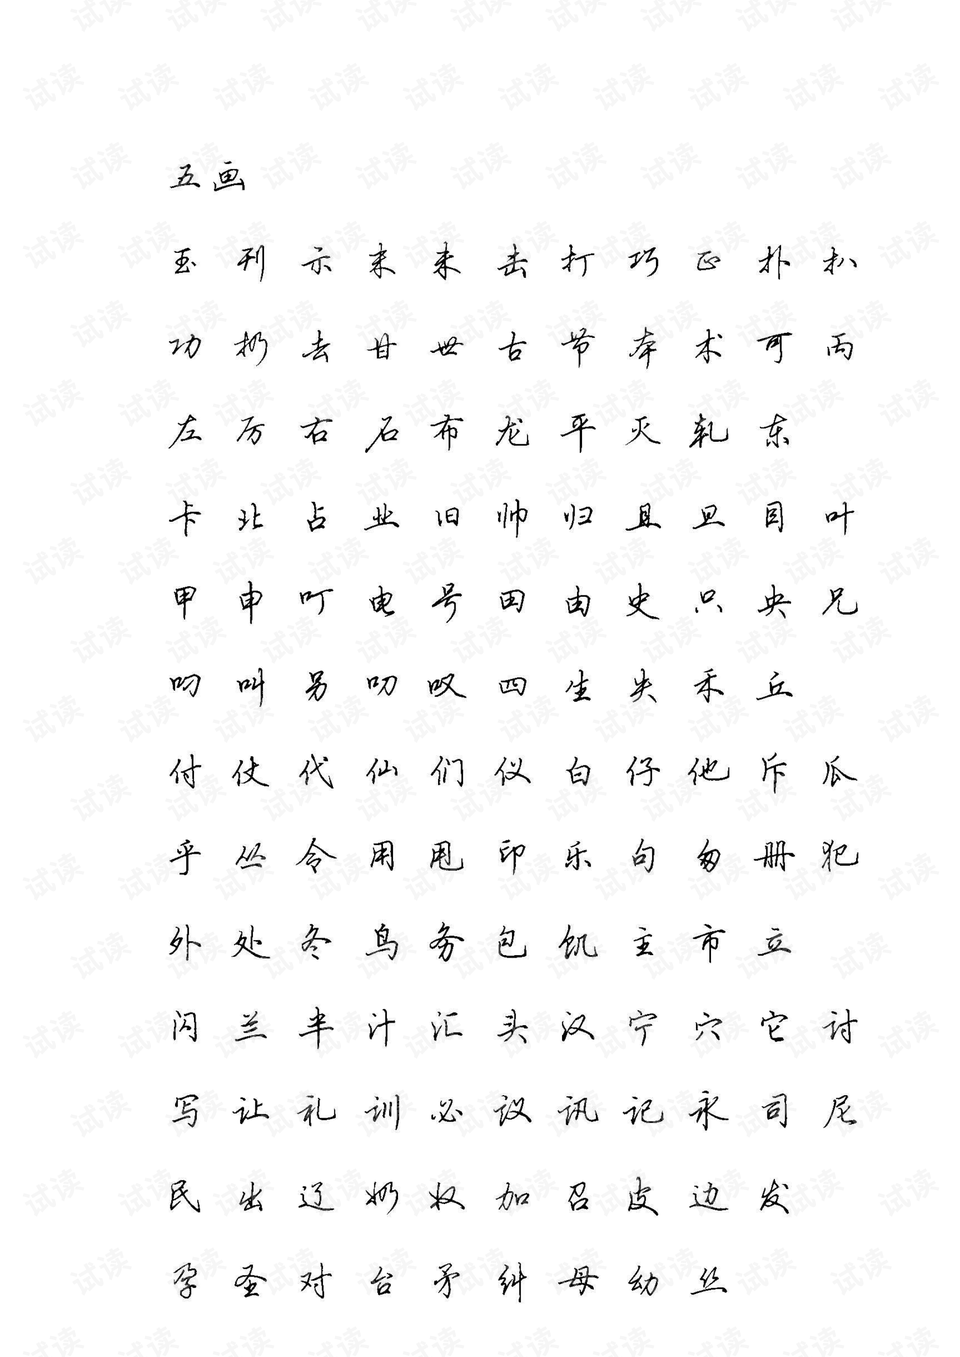 五画
玉 刊 示 末 未 击 打 巧 正 朴 扒
功 扔 去 甘 世 古 节 本 术 可 丙
左 厉 右 石 布 龙 平 灭 轧 东
卡 北 占 业 旧 帅 归 且 旦 目 叶
甲 申 叮 电 号 田 由 史 只 央 兄
叼 叫 另 叨 叹 四 生 失 禾 丘
付 仗 代 仙 们 仪 白 仔 他 斥 瓜
乎 丛 令 用 甩 印 乐 句 匆 册 犯
外 处 冬 鸟 务 包 饥 主 市 立
闪 兰 半 汁 汇 头 汉 宁 穴 它 讨
写 让 礼 训 必 议 讯 记 永 司 尼
民 出 辽 奶 奴 加 召 皮 边 发
孕 圣 对 台 矛 纠 母 幼 丝